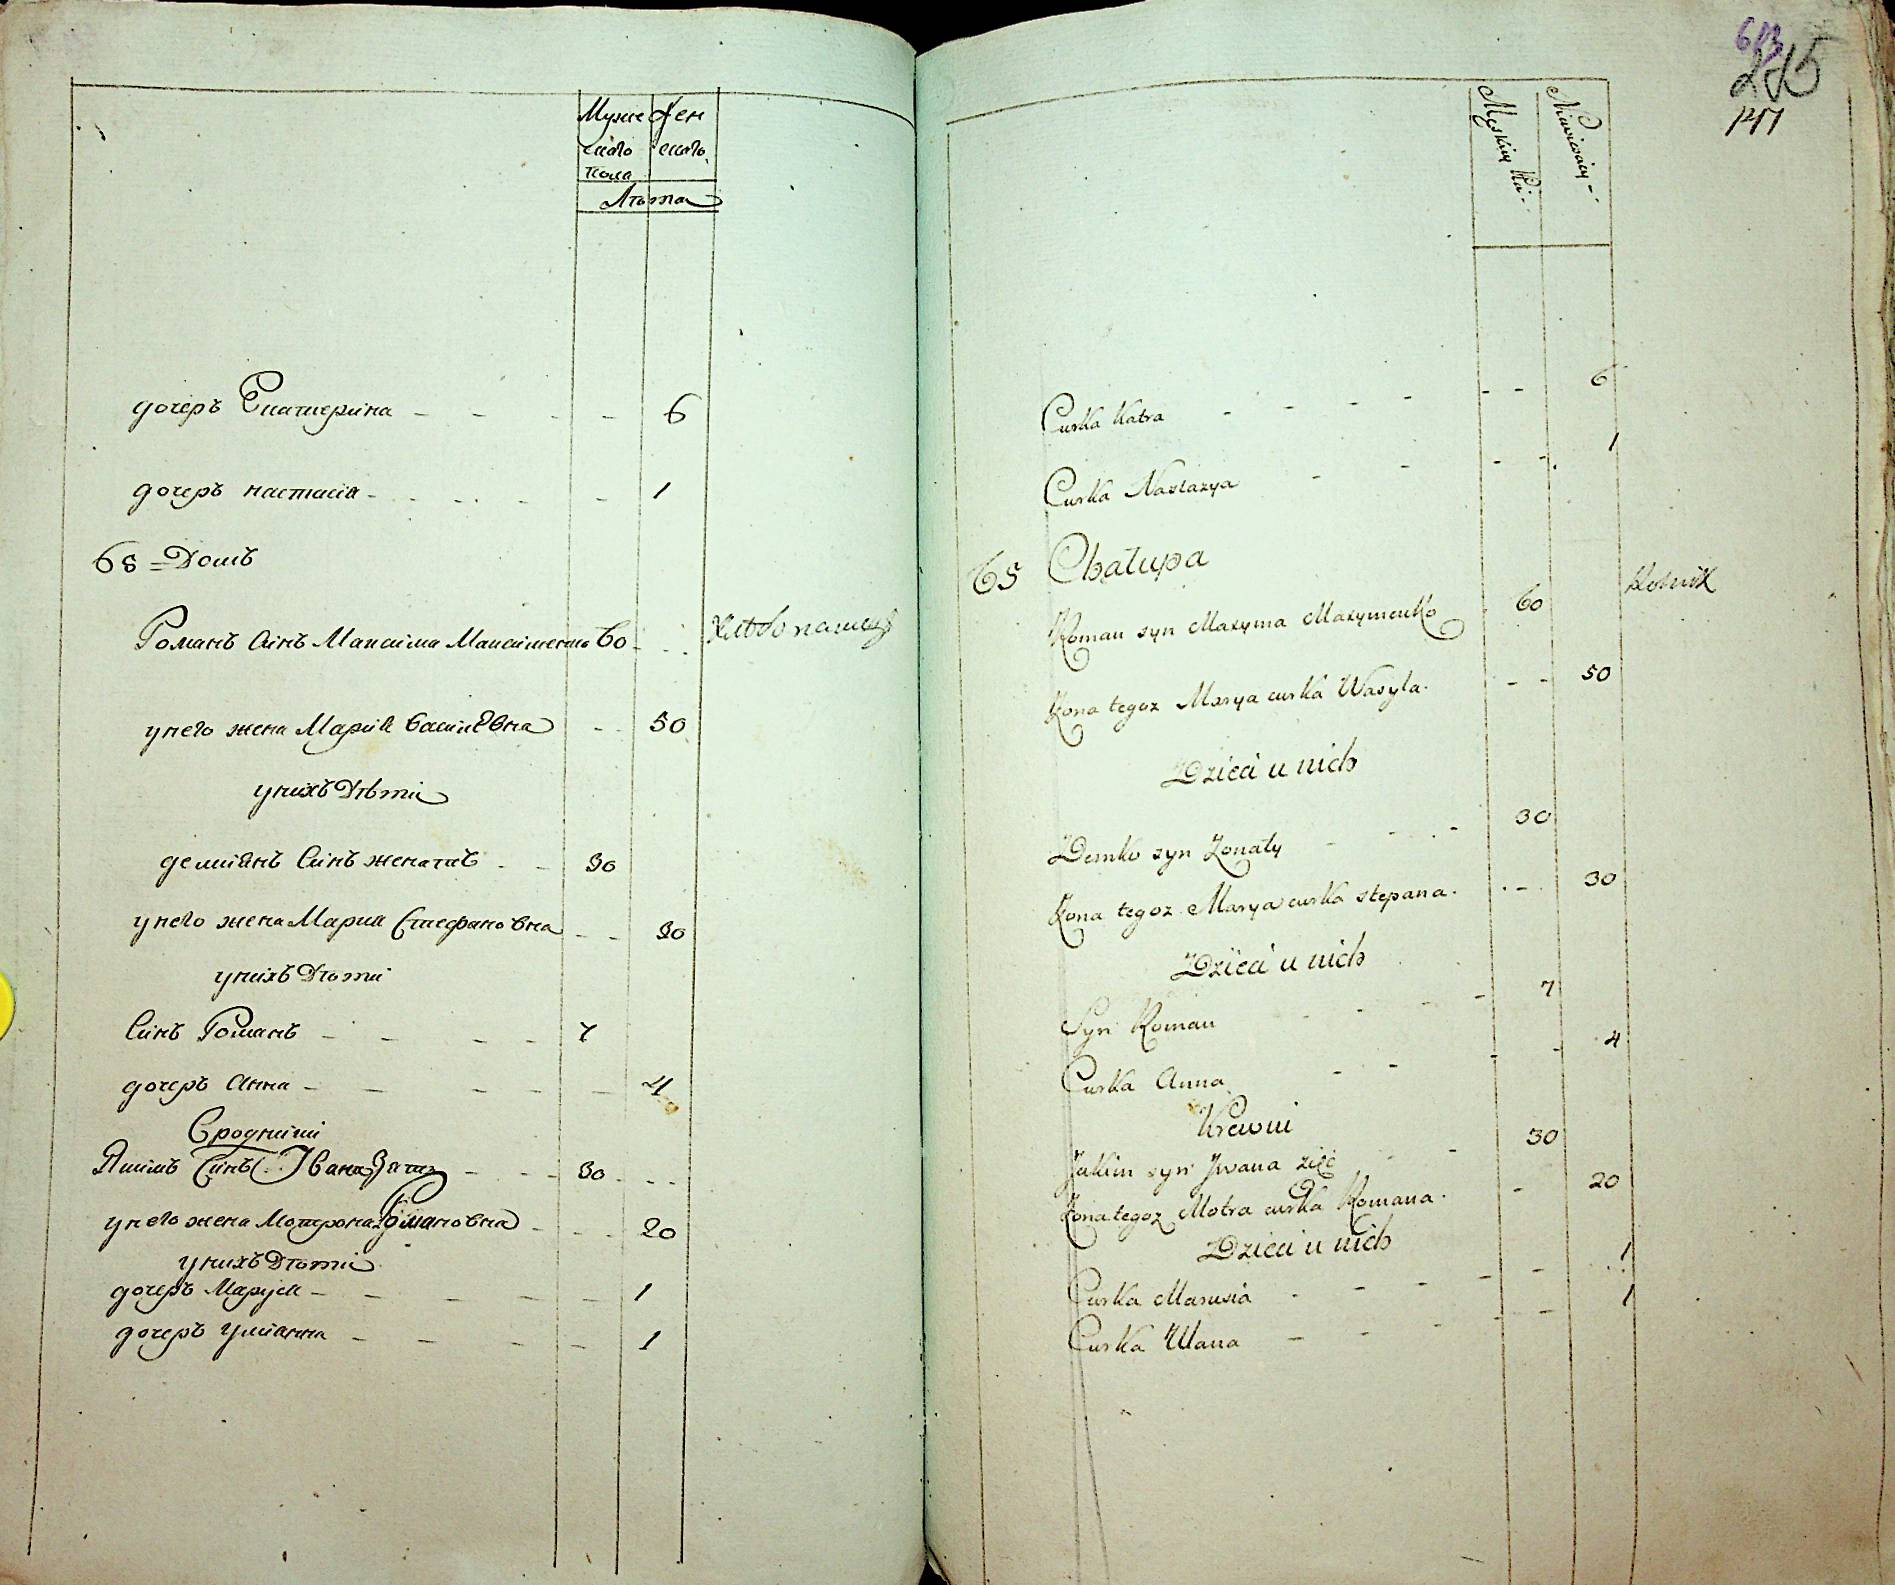 Мужс Жен
скаго скаго
пола
Лѣта
дочеръ Екатерина - - - - 6
дочеръ настасія - - - - - 1
65 = Домъ
Романъ Синъ Максима Максименко 60 - - - Хлѣбопашецъ
у него жена Марія Василевна - - 50
унихъ Дѣти
демиянъ Синъ женатъ - - 30
у него жена Мария Стефановна - - 30
унихъ Дѣти
Синъ Романъ - - - - 7
дочеръ Анна - - - - - 4
Сродники
Якимъ Синъ Ивана Зять - - - 30 - - -
у него жена Мотрона Романовна - - - 20
унихъ Дѣти
дочеръ Марія - - - - - 1
дочеръ улианна - - - - 1
613
225
147
Męskiey
Niewiesciey
Curka Katra - - - - - - 6
Curka Nastazya - - - - 1
65 Chałupa
Roman syn Maxyma Maxymenko 60 Rolnik
Żona tegoz Marya curka Wasyla. - - 50
Dzieci u nich
Demko syn Żonaty - - - 30
Żona tegoz Marya curka stepana. - - - 30
Dzieci u nich
Syn Roman - - - - - 7
Curka Anna - - - - 4
Krewni
Jakim syn Jwana zięć - - 30
Żona tegoz Motra curka Romana. - 20
Dzieci u nich
Curka Marusia - - - - - 1
Curka Ulana - - - - - 1